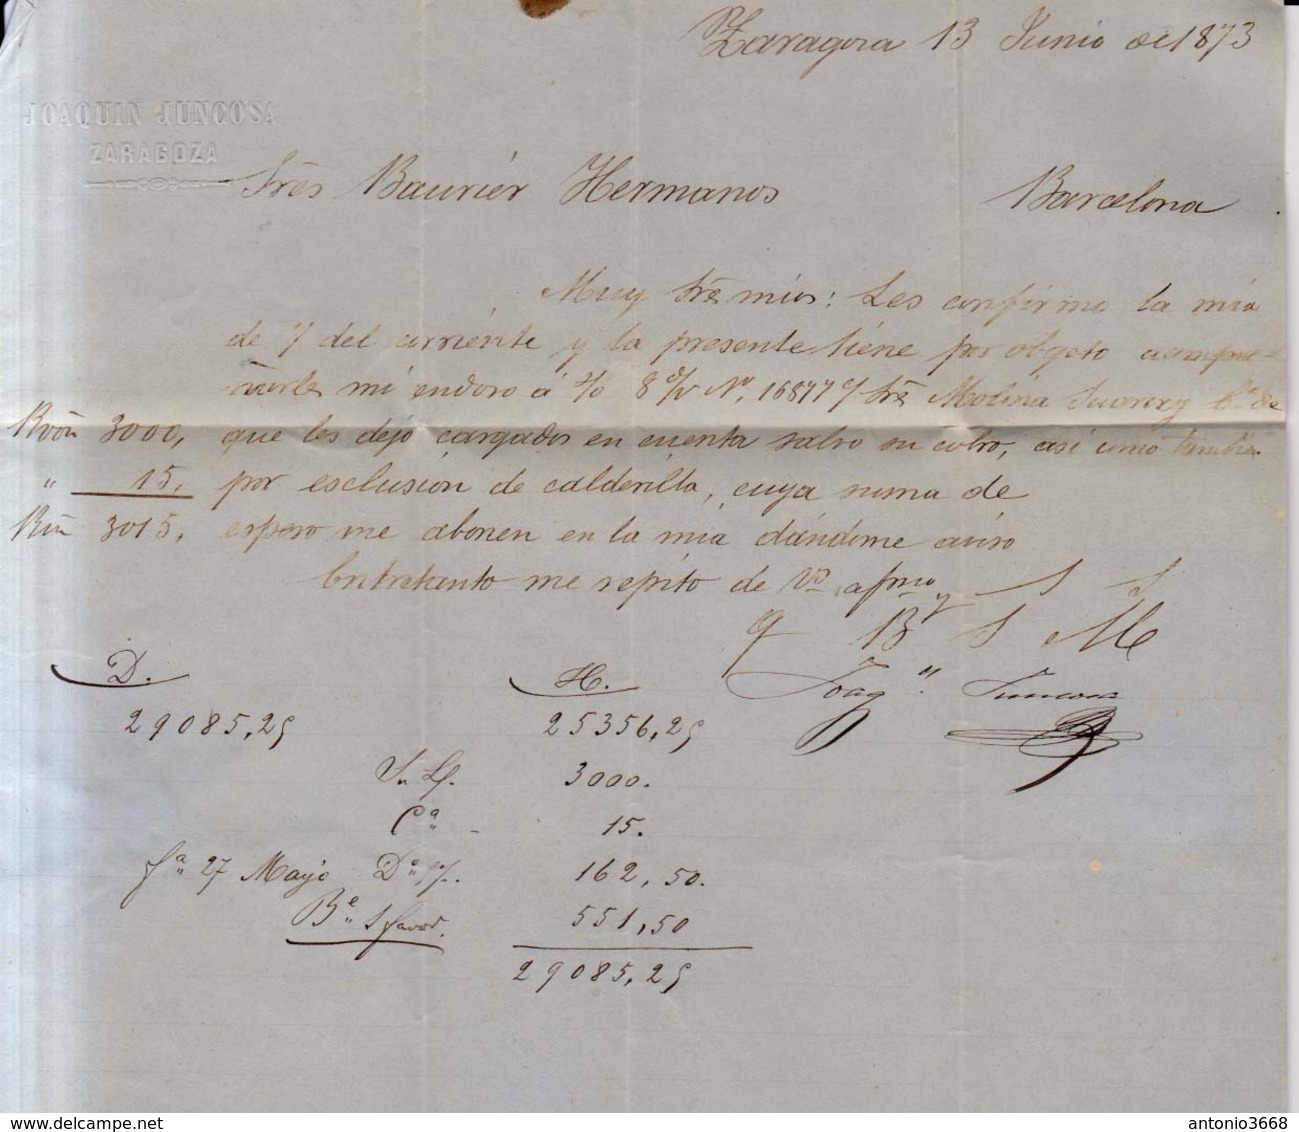 Zaragoza 13 Junio de 1873
JOAQUIN JUNCOSA
ZARAGOZA
Srēs Baurier Hermanos Barcelona
Muy Srēs mios: Les confirmo la mia
de 7 del corriente y la presente tiene por objeto acompa-
ñarles mi endoso á 8 d/v No. 16877 Srēs Molina Suarez y Ca. de
Rvōn 3000, que les dejo cargados en cuenta salvo su cobro, asi como tambien
" 15, por esclusion de calderilla, cuya suma de
Rvn 3015, espero me abonen en la mia dandome aviso
Entretanto me repito de Vd. afmo y S S
q B S M
Joaqn. Juncosa
D. H.
29085,25 25356,25
S. L/. 3000.
Ca. - 15.
fa. 27 Mayo Do. 162,50.
Be. S favor. 551,50
29085,25
antonio3668